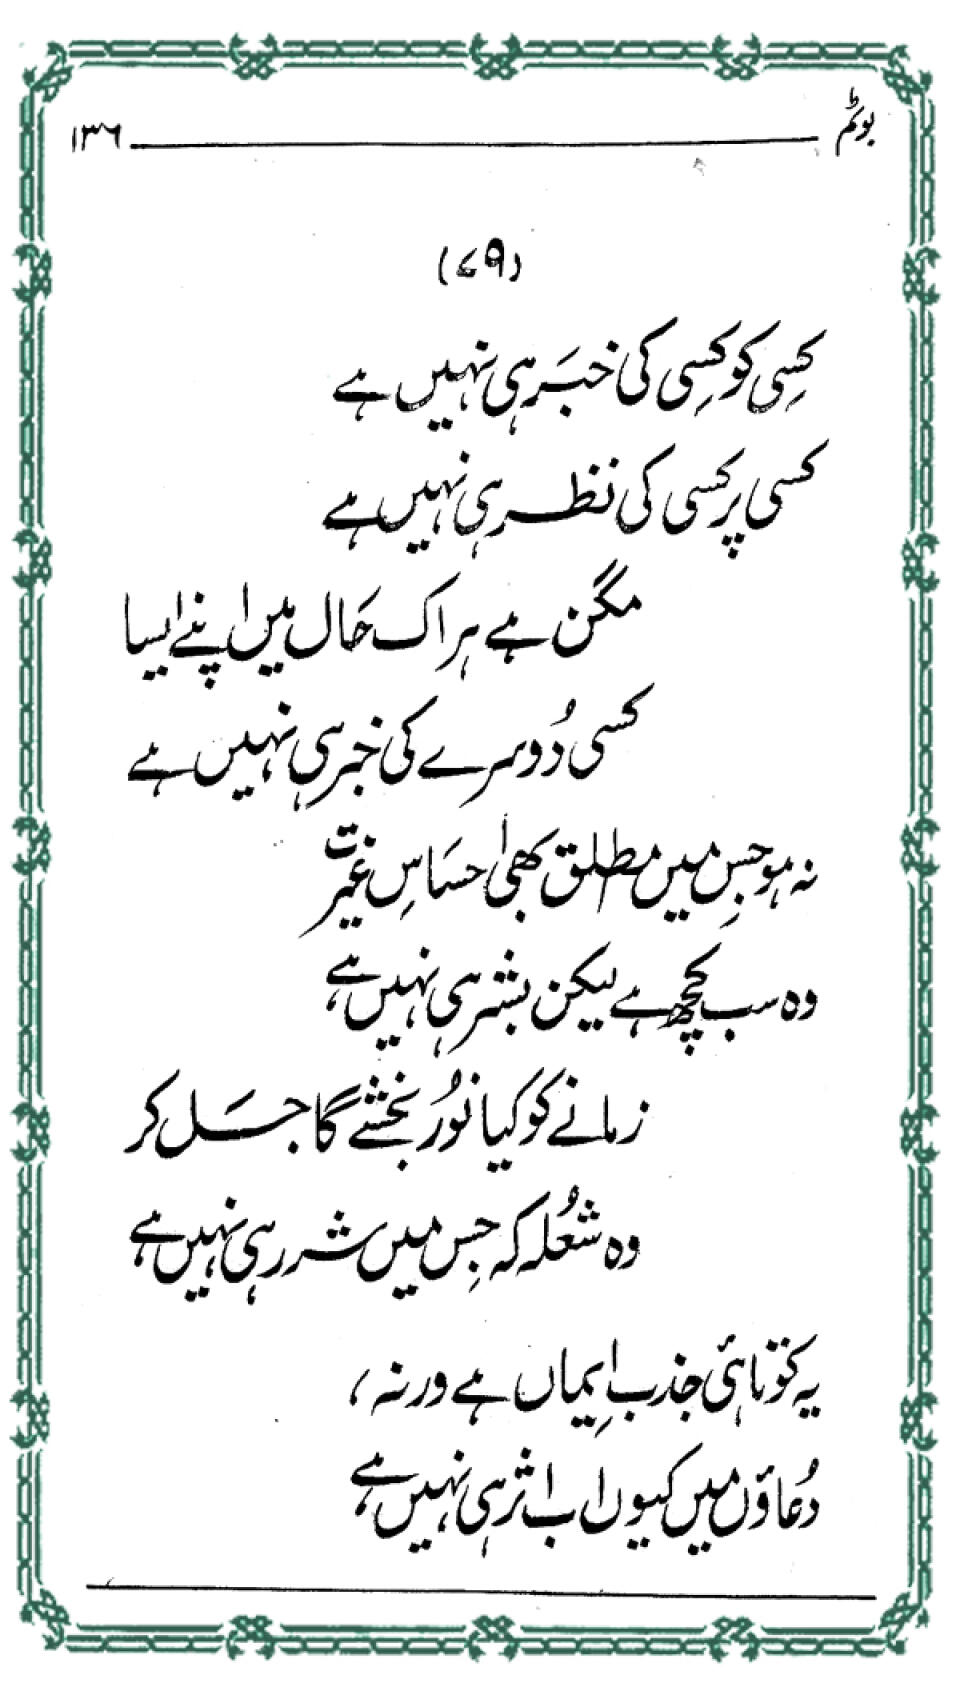 بوٹم ۱۳۶
(۷۹)
کِسی کو کِسی کی خبَر ہی نہیں ہے
کسی پر کسی کی نظر ہی نہیں ہے
مگن ہے ہر اک حَال میں اپنے ایسا
کسی دُوسرے کی خبر ہی نہیں ہے
نہ ہو جِس میں مطلق بھی احسَاسِ غیرت
وہ سب کچھ ہے لیکن بشر ہی نہیں ہے
زمانے کو کیا نوُر بخشے گا جَل کر
وہ شعُلہ کہ جِس میں شرر ہی نہیں ہے
یہ کوتاہئی جذب اِیماں ہے ورنہ،
دُعاؤں میں کیوں اب اثر ہی نہیں ہے